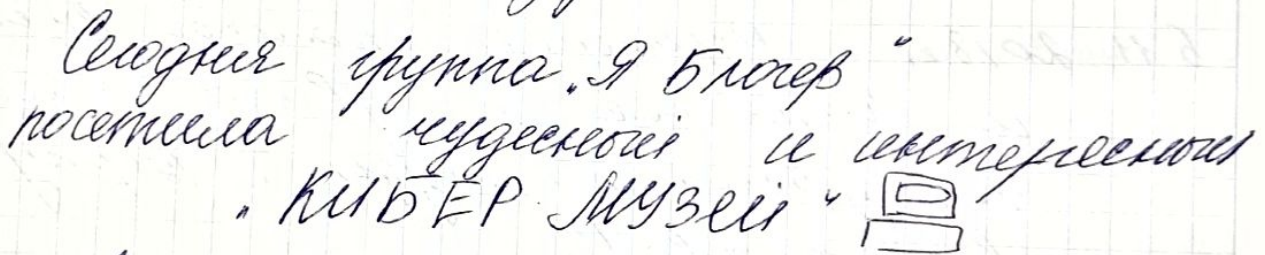 Сегодня группа „Я Блогер“
посетила чудесный и интересный
„КИБЕР МУЗей“